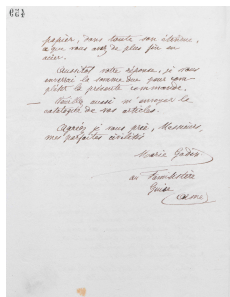 429
papier, dans toute son étendue,
ce que vous avez de plus fin en
acier.
Aussitôt votre réponse, je vous
enverrai la somme due pour com-
pléter la présente commande.
Veuillez aussi m'envoyer le
catalogue de vos articles.
Agréez je vous prie, Messieurs,
mes parfaites civilités
Marie
au Familistère
Guise
(Aisne)